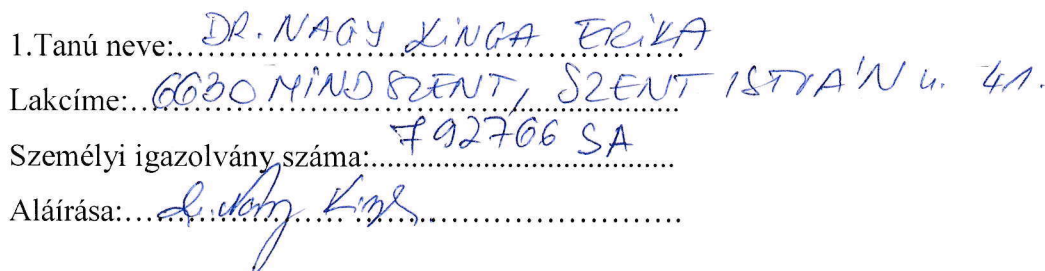 1.Tanú neve: DR. NAGY KINGA ERIKA
Lakcíme: 6630 MINDSZENT, SZENT ISTVÁN u. 41.
Személyi igazolvány száma: 792766 SA
Aláírása: dr. Nagy Kinga